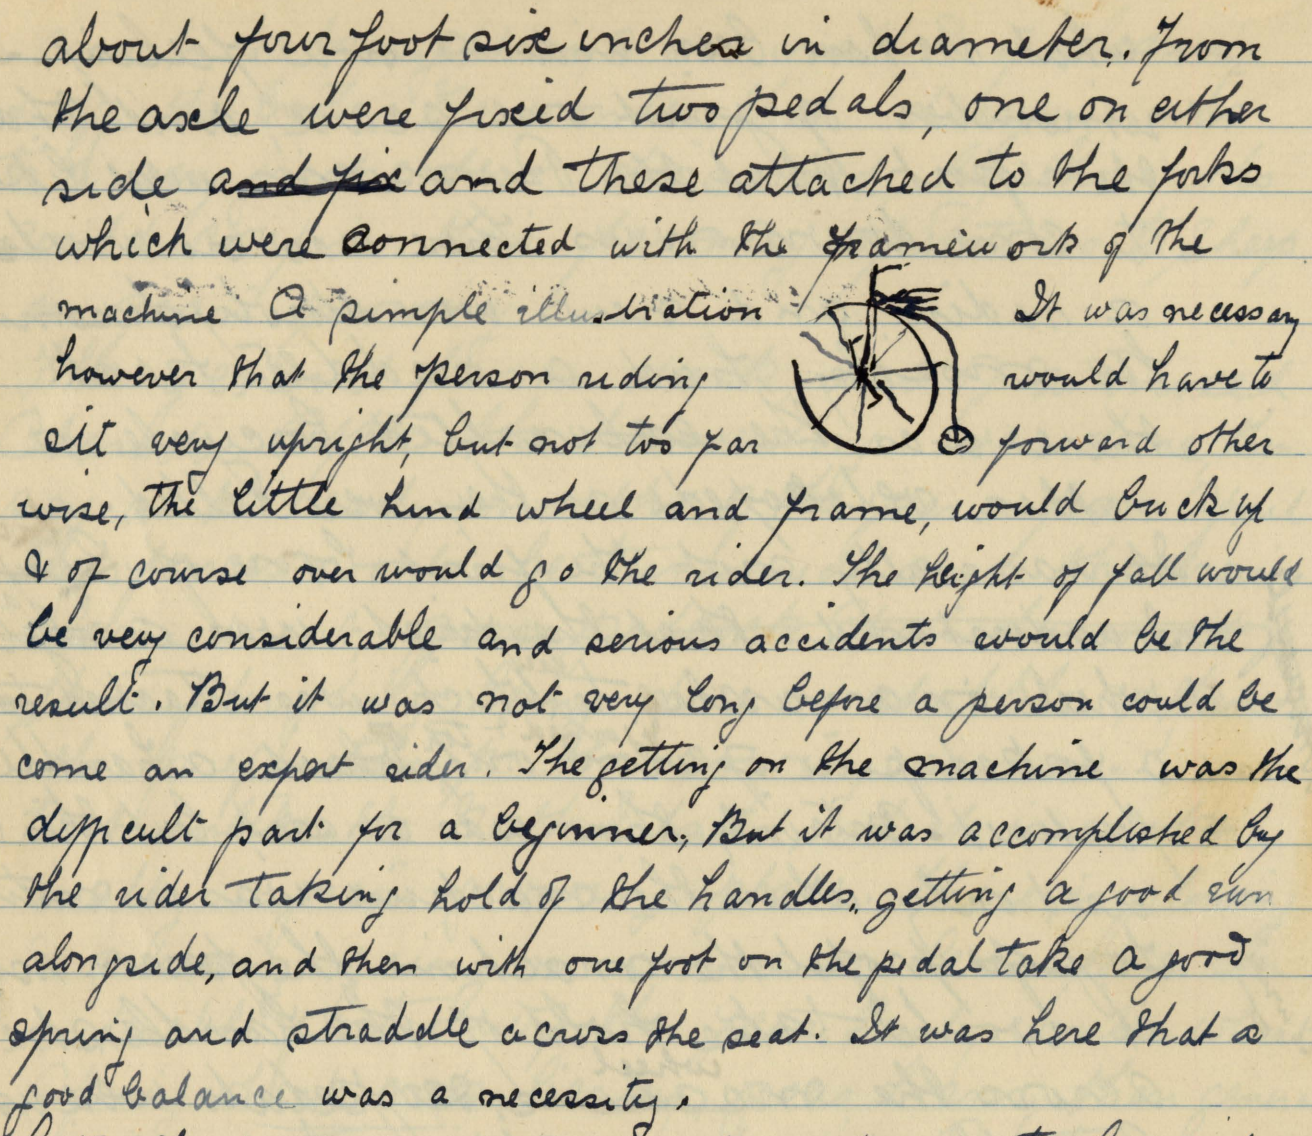 about four foot six inches in diameter. From
the axle were fixed two pedals, one on either
side and fix and these attached to the forks
which were connected with the framework of the
machine A simple illustration It was necessary
however that the person riding would have to
sit very upright, but not too far forward other
wise, the little hind wheel and frame, would buck up
& of course over would go the rider. The height of fall would
be very considerable and serious accidents would be the
result. But it was not very long before a person could be
come an expert rider. The getting on the machine was the
difficult part for a beginner, But it was accomplished by
the rider taking hold of the handles, getting a good run
alongside, and then with one foot on the pedal take a good
spring and straddle across the seat. It was here that a
good balance was a necessity.